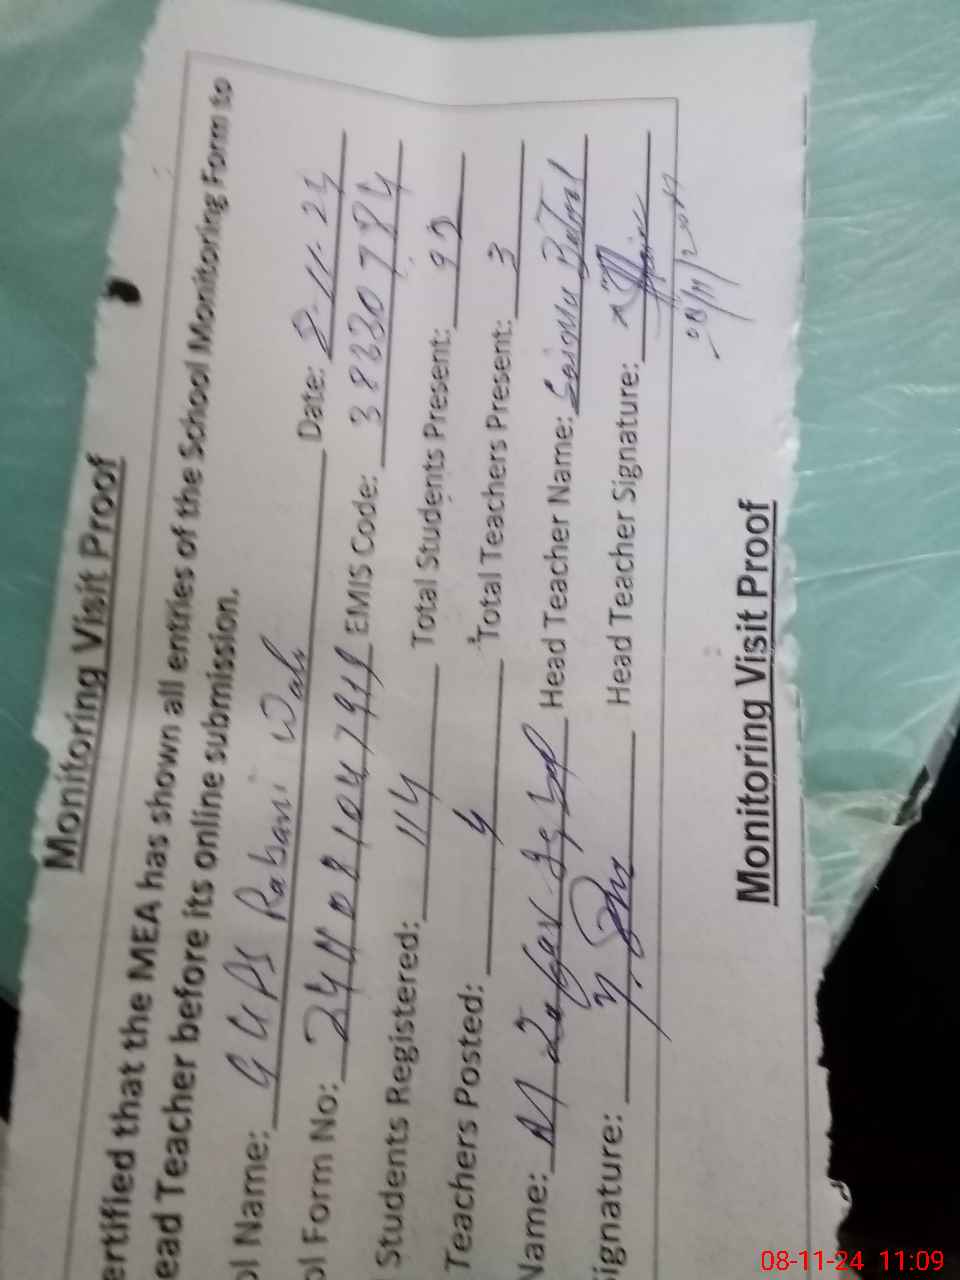 Monitoring Visit Proof
ertified that the MEA has shown all entries of the School Monitoring Form to
ead Teacher before its online submission.
ol Name: GGPS Rabani Wah Date: 8-11-24
ol Form No: EMIS Code: 38230784
Students Registered: 114 Total Students Present: 93
Teachers Posted: 4 Total Teachers Present: 3
Name: M Zafar Head Teacher Name: Batool
ignature: Head Teacher Signature:
08/11/2024
Monitoring Visit Proof
08-11-24 11:09